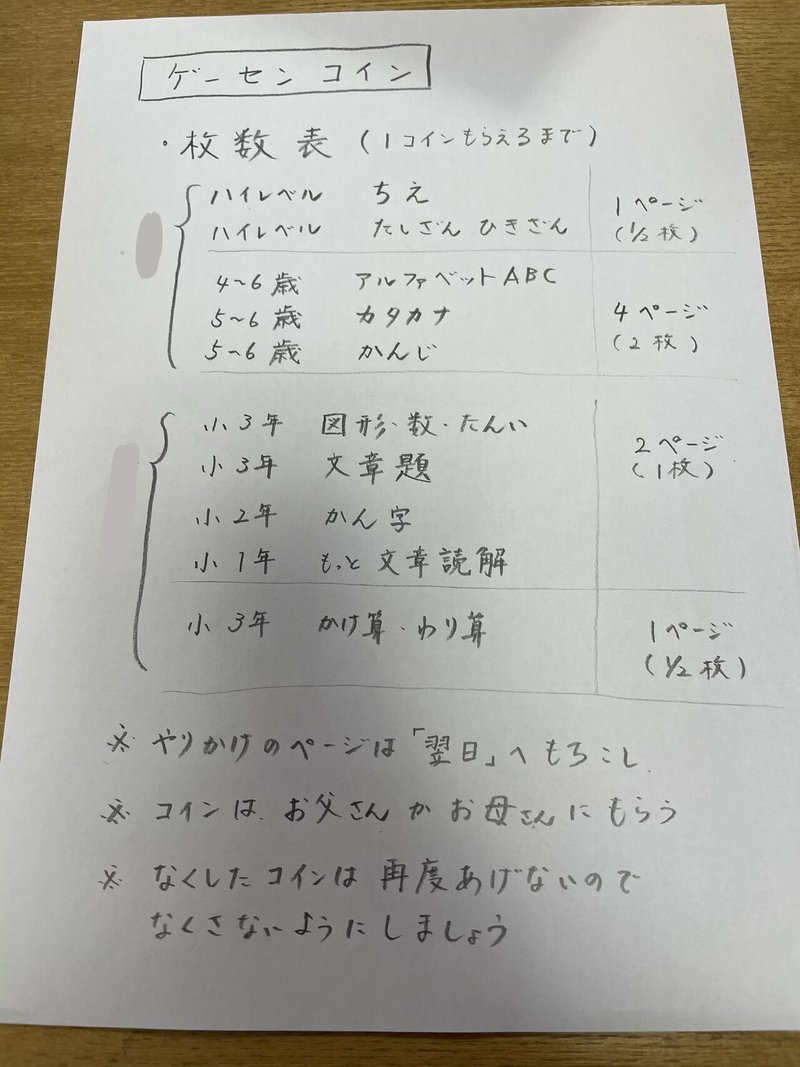 ゲーセン コイン
・枚数表(1コインもらえるまで)
ハイレベル ちえ 1ページ
ハイレベル たしざん ひきざん (1/2枚)
4~6歳 アルファベットABC
5~6歳 カタカナ 4ページ
5~6歳 かんじ (2枚)
小3年 図形・数・たんい 2ページ
小3年 文章題 (1枚)
小2年 かん字
小1年 もっと文章読解
小3年 かけ算・わり算 1ページ
(1/2枚)
※ やりかけのページは「翌日」へもちこし
※ コインは、お父さんかお母さんにもらう
※ なくしたコインは再度あげないので
なくさないようにしましょう